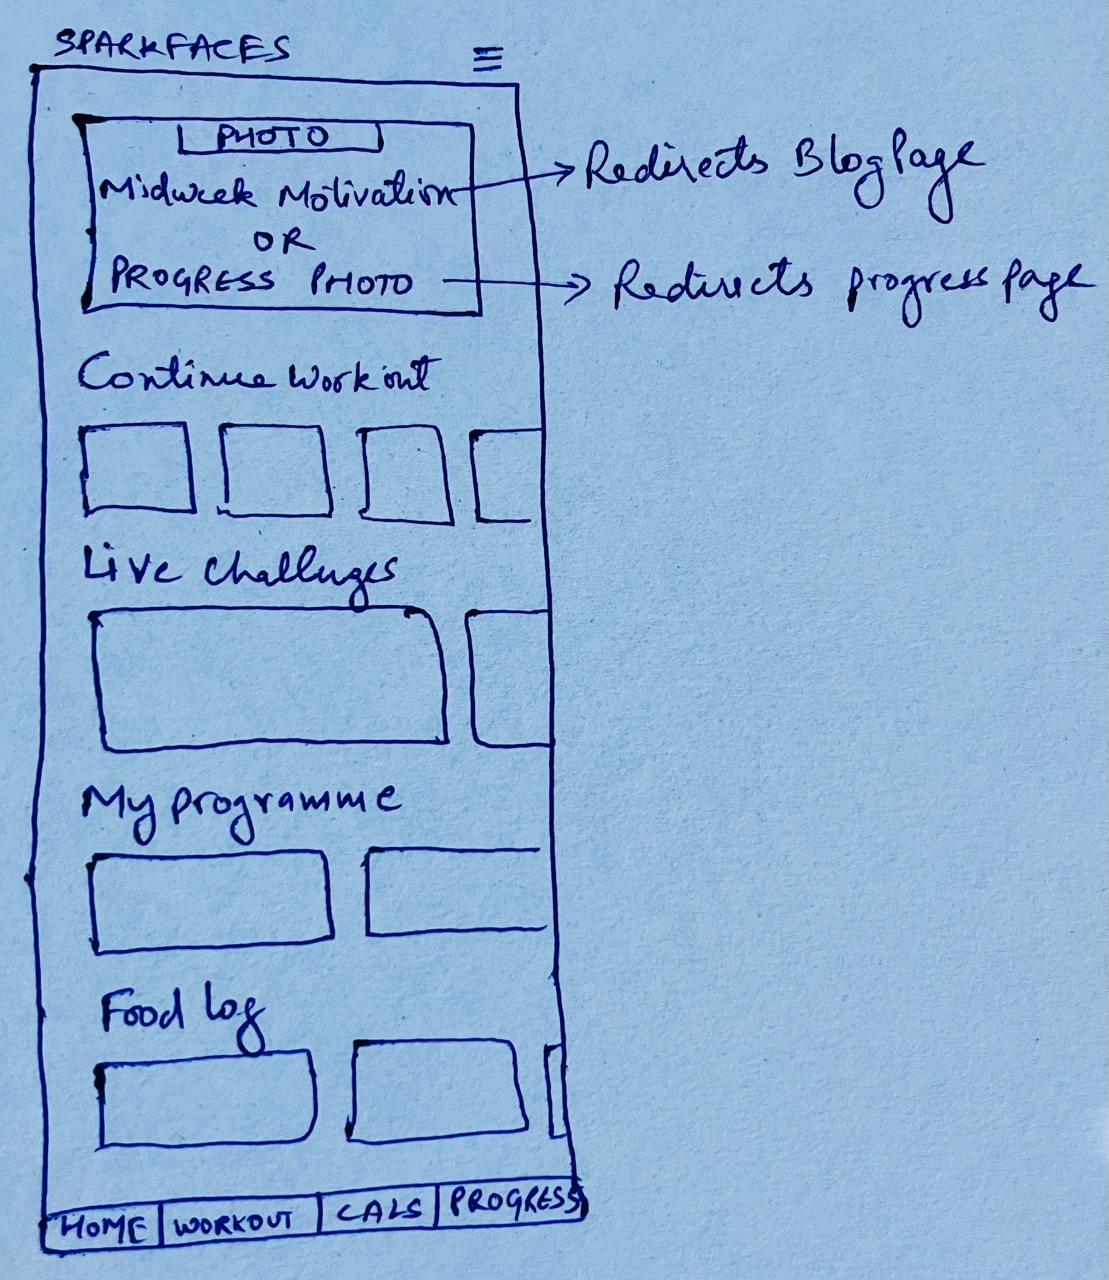 SPARKFACES
PHOTO
Midweek Motivation
Redirects Blog Page
OR
PROGRESS PHOTO
Redirects progress page
Continue Workout
Live Challenges
My programme
Food log
HOME WORKOUT CALS PROGRESS